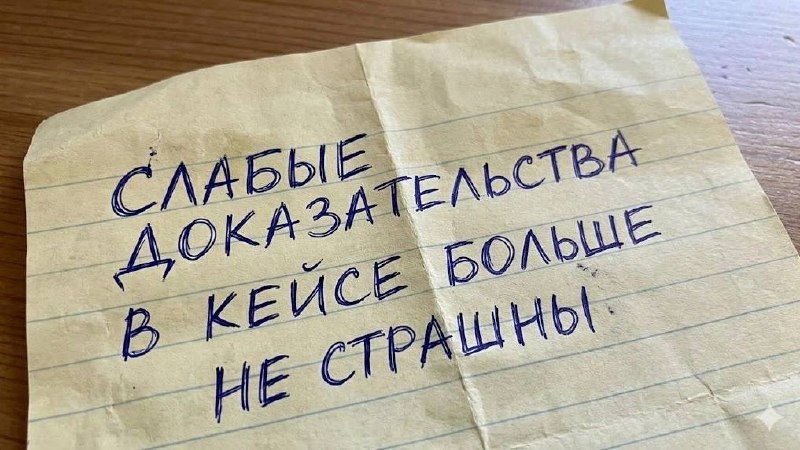 СЛАБЫЕ
ДОКАЗАТЕЛЬСТВА
В КЕЙСЕ БОЛЬШЕ
НЕ СТРАШНЫ